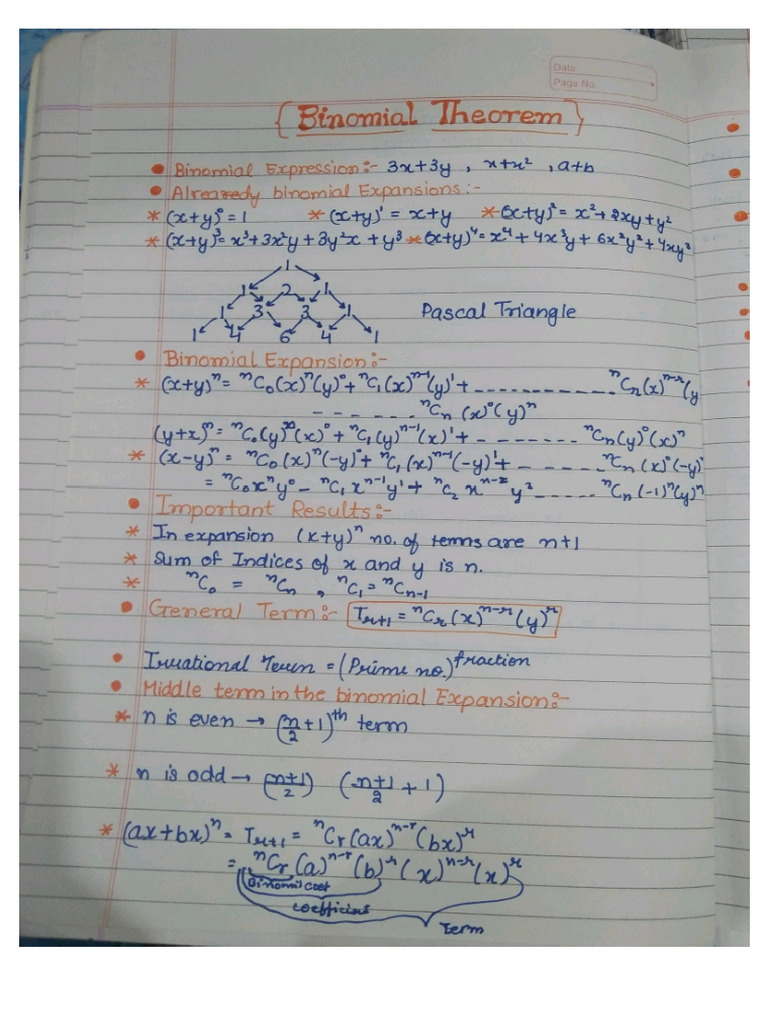 Date
Page No.
{Binomial Theorem}
• Binomial Expression:- 3x+3y , x+x² , a+b
• Alrearedy binomial Expansions:-
* (x+y)⁰=1 * (x+y)¹ = x+y * (x+y)² = x²+2xy+y²
* (x+y)³=x³+3x²y+3y²x+y³ * (x+y)⁴=x⁴+4x³y+6x²y²+4xy³
1
1 2 1
1 3 3 1 Pascal Triangle
1 4 6 4 1
• Binomial Expansion:-
* (x+y)ⁿ = ⁿC₀(x)ⁿ(y)⁰+ⁿC₁(x)ⁿ⁻¹(y)¹+ ------------ ⁿCₙ(x)ⁿ⁻ʳ(y
------- ⁿCₙ (x)⁰(y)ⁿ
(y+x)ⁿ=ⁿC₀(y)ⁿ(x)⁰+ⁿC₁(y)ⁿ⁻¹(x)¹+ ------- ⁿCₙ(y)⁰(x)ⁿ
* (x-y)ⁿ = ⁿC₀(x)ⁿ(-y)⁰+ⁿC₁(x)ⁿ⁻¹(-y)¹+ ------ ⁿCₙ(x)⁰(-y)
= ⁿC₀xⁿy⁰ - ⁿC₁xⁿ⁻¹y¹ + ⁿC₂ xⁿ⁻²y² ----- ⁿCₙ(-1)ⁿ(y)ⁿ
• Important Results:-
* In expansion (x+y)ⁿ no. of terms are n+1
* Sum of Indices of x and y is n.
* ⁿC₀ = ⁿCₙ , ⁿC₁ = ⁿCₙ₋₁
• General Term:- Tᵣ₊₁ = ⁿCᵣ(x)ⁿ⁻ʳ(y)ʳ
• Irrational Term = (Prime no.)^fraction
• Middle term in the binomial Expansion:-
* n is even → (n/2+1)ᵗʰ term
* n is odd → (n+1/2) (n+1/2 + 1)
* (ax+bx)ⁿ = Tᵣ₊₁ = ⁿCᵣ(ax)ⁿ⁻ʳ(bx)ʳ
= ⁿCᵣ(a)ⁿ⁻ʳ(b)ʳ(x)ⁿ⁻ʳ(x)ʳ
Binomil coef
coefficins
Term